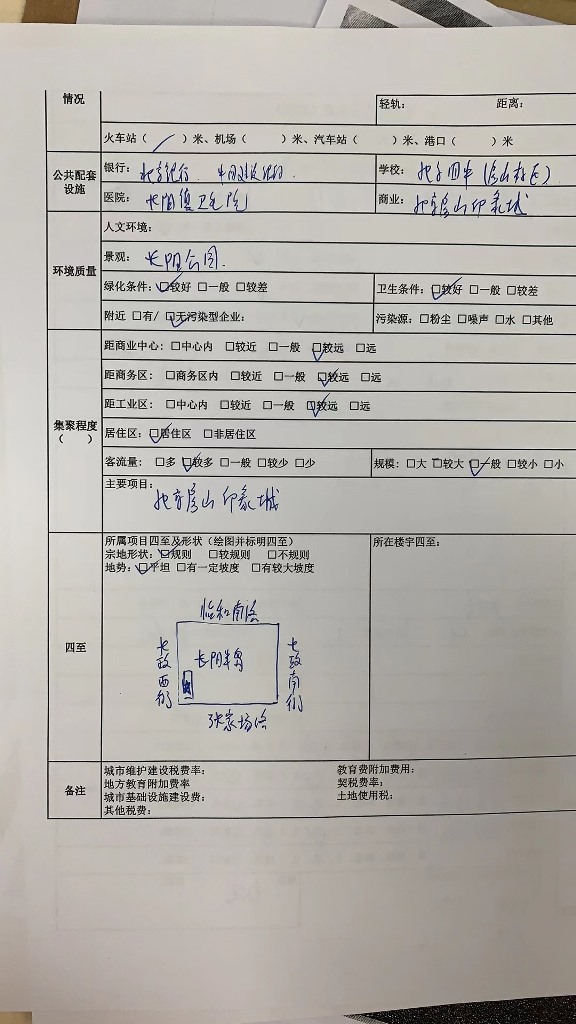 情况
轻轨： 距离：
火车站（ ／ ）米、机场（ ）米、汽车站（ ）米、港口（ ）米
公共配套设施
银行：北京银行. 中国建设银行. 学校：北京四中（房山校区）
医院：长阳镇卫生院 商业：北京房山印象城
环境质量
人文环境：
景观：长阳公园.
绿化条件：☑较好 □一般 □较差 卫生条件：☑较好 □一般 □较差
附近 □有/ ☑无污染型企业： 污染源：□粉尘 □噪声 □水 □其他
集聚程度
（ ）
距商业中心：□中心内 □较近 □一般 ☑较远 □远
距商务区：□商务区内 □较近 □一般 ☑较远 □远
距工业区：□中心内 □较近 □一般 ☑较远 □远
居住区：☑居住区 □非居住区
客流量：□多 ☑较多 □一般 □较少 □少 规模：□大 □较大 ☑一般 □较小 □小
主要项目：
北京房山印象城
四至
所属项目四至及形状（绘图并标明四至） 所在楼宇四至：
宗地形状：☑规则 □较规则 □不规则
地势：☑平坦 □有一定坡度 □有较大坡度
怡和南路
长政西街
长阳半岛
长政南街
张家场路
备注
城市维护建设税费率： 教育费附加费用：
地方教育附加费率 契税费率：
城市基础设施建设费： 土地使用税：
其他税费：